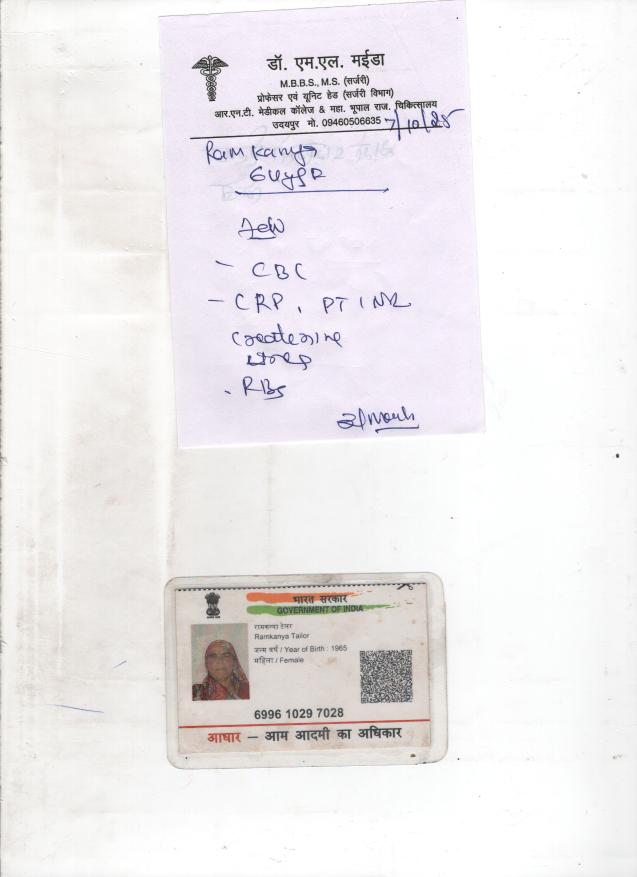 डॉ. एम.एल. मईडा
M.B.B.S., M.S. (सर्जरी)
प्रोफेसर एवं यूनिट हेड (सर्जरी विभाग)
आर.एन.टी. मेडीकल कॉलेज & महा. भूपाल राज. चिकित्सालय
उदयपुर मो. 09460506635
7/10/25
Ram Kanya
Adv
- CBC
- CRP, PT INR
Createnine
- RBS
भारत सरकार
GOVERNMENT OF INDIA
रामकन्या टेलर
Ramkanya Tailor
जन्म वर्ष / Year of Birth : 1965
महिला / Female
6996 1029 7028
आधार – आम आदमी का अधिकार